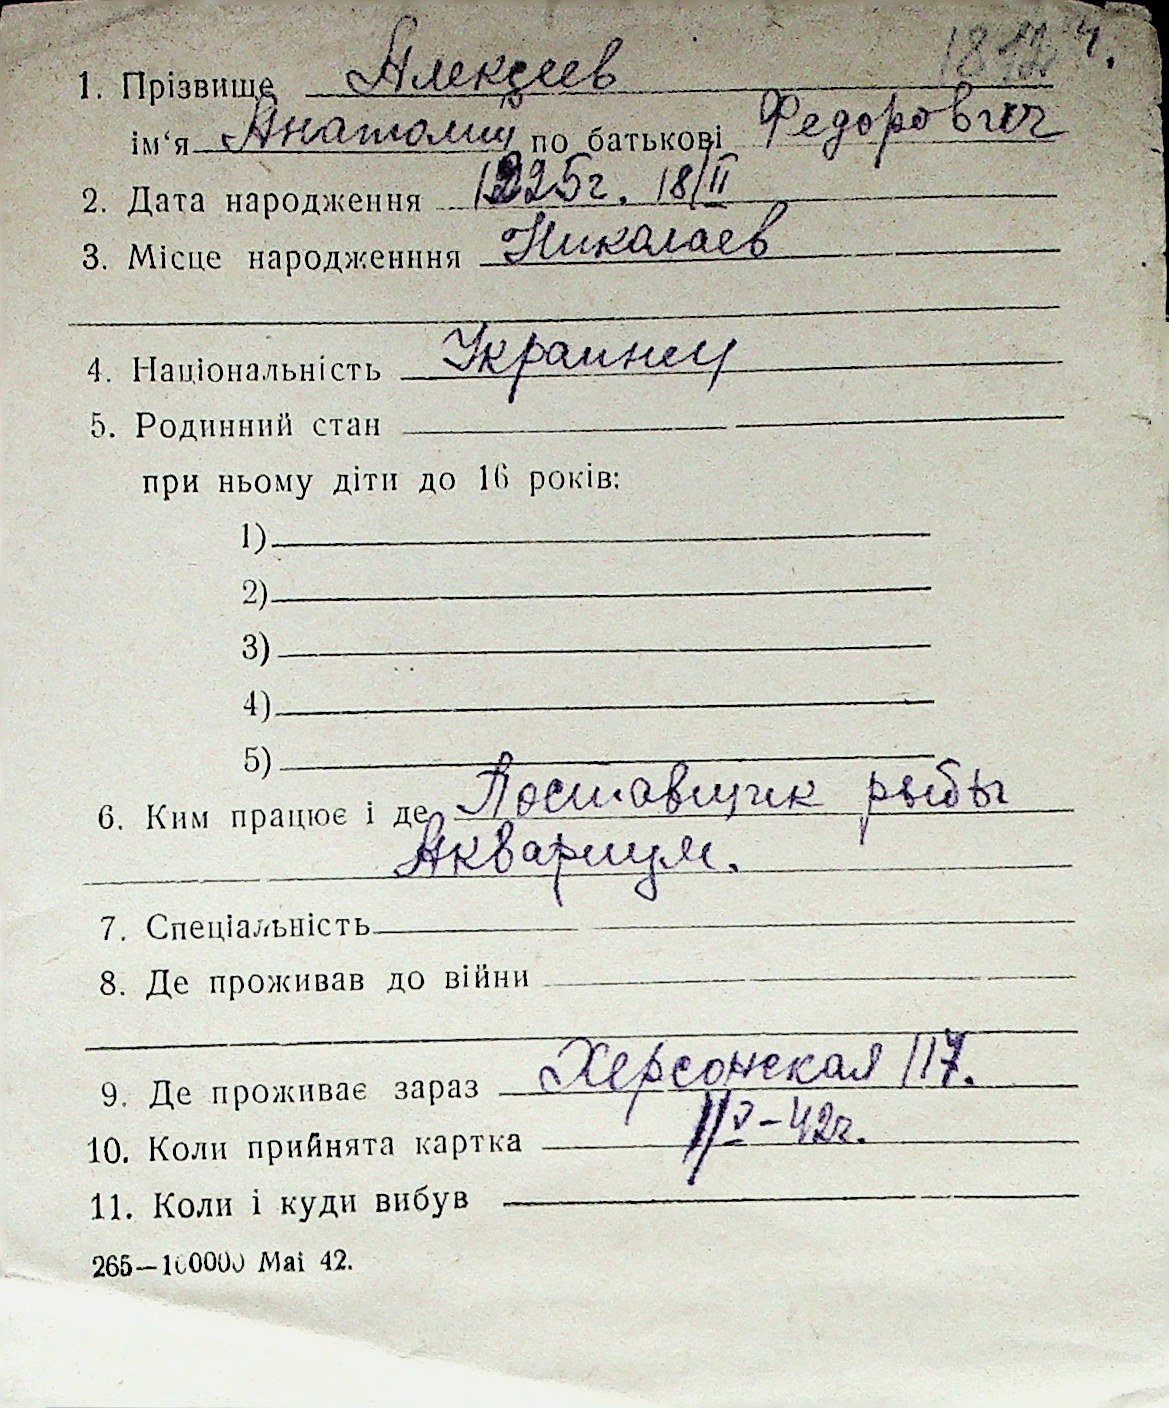 1. Прізвище Алексеев
ім'я Анатолий по батькові Федорович
2. Дата народження 1925г. 18/II
3. Місце народженння Николаев
4. Національність Украинец
5. Родинний стан
при ньому діти до 16 років:
1)
2)
3)
4)
5)
6. Ким працює і де Поставщик рыбы
Аквариум.
7. Спеціальність
8. Де проживав до війни
9. Де проживає зараз Херсонская 117.
10. Коли прийнята картка V-42г.
11. Коли і куди вибув
265—100000 Mai 42.